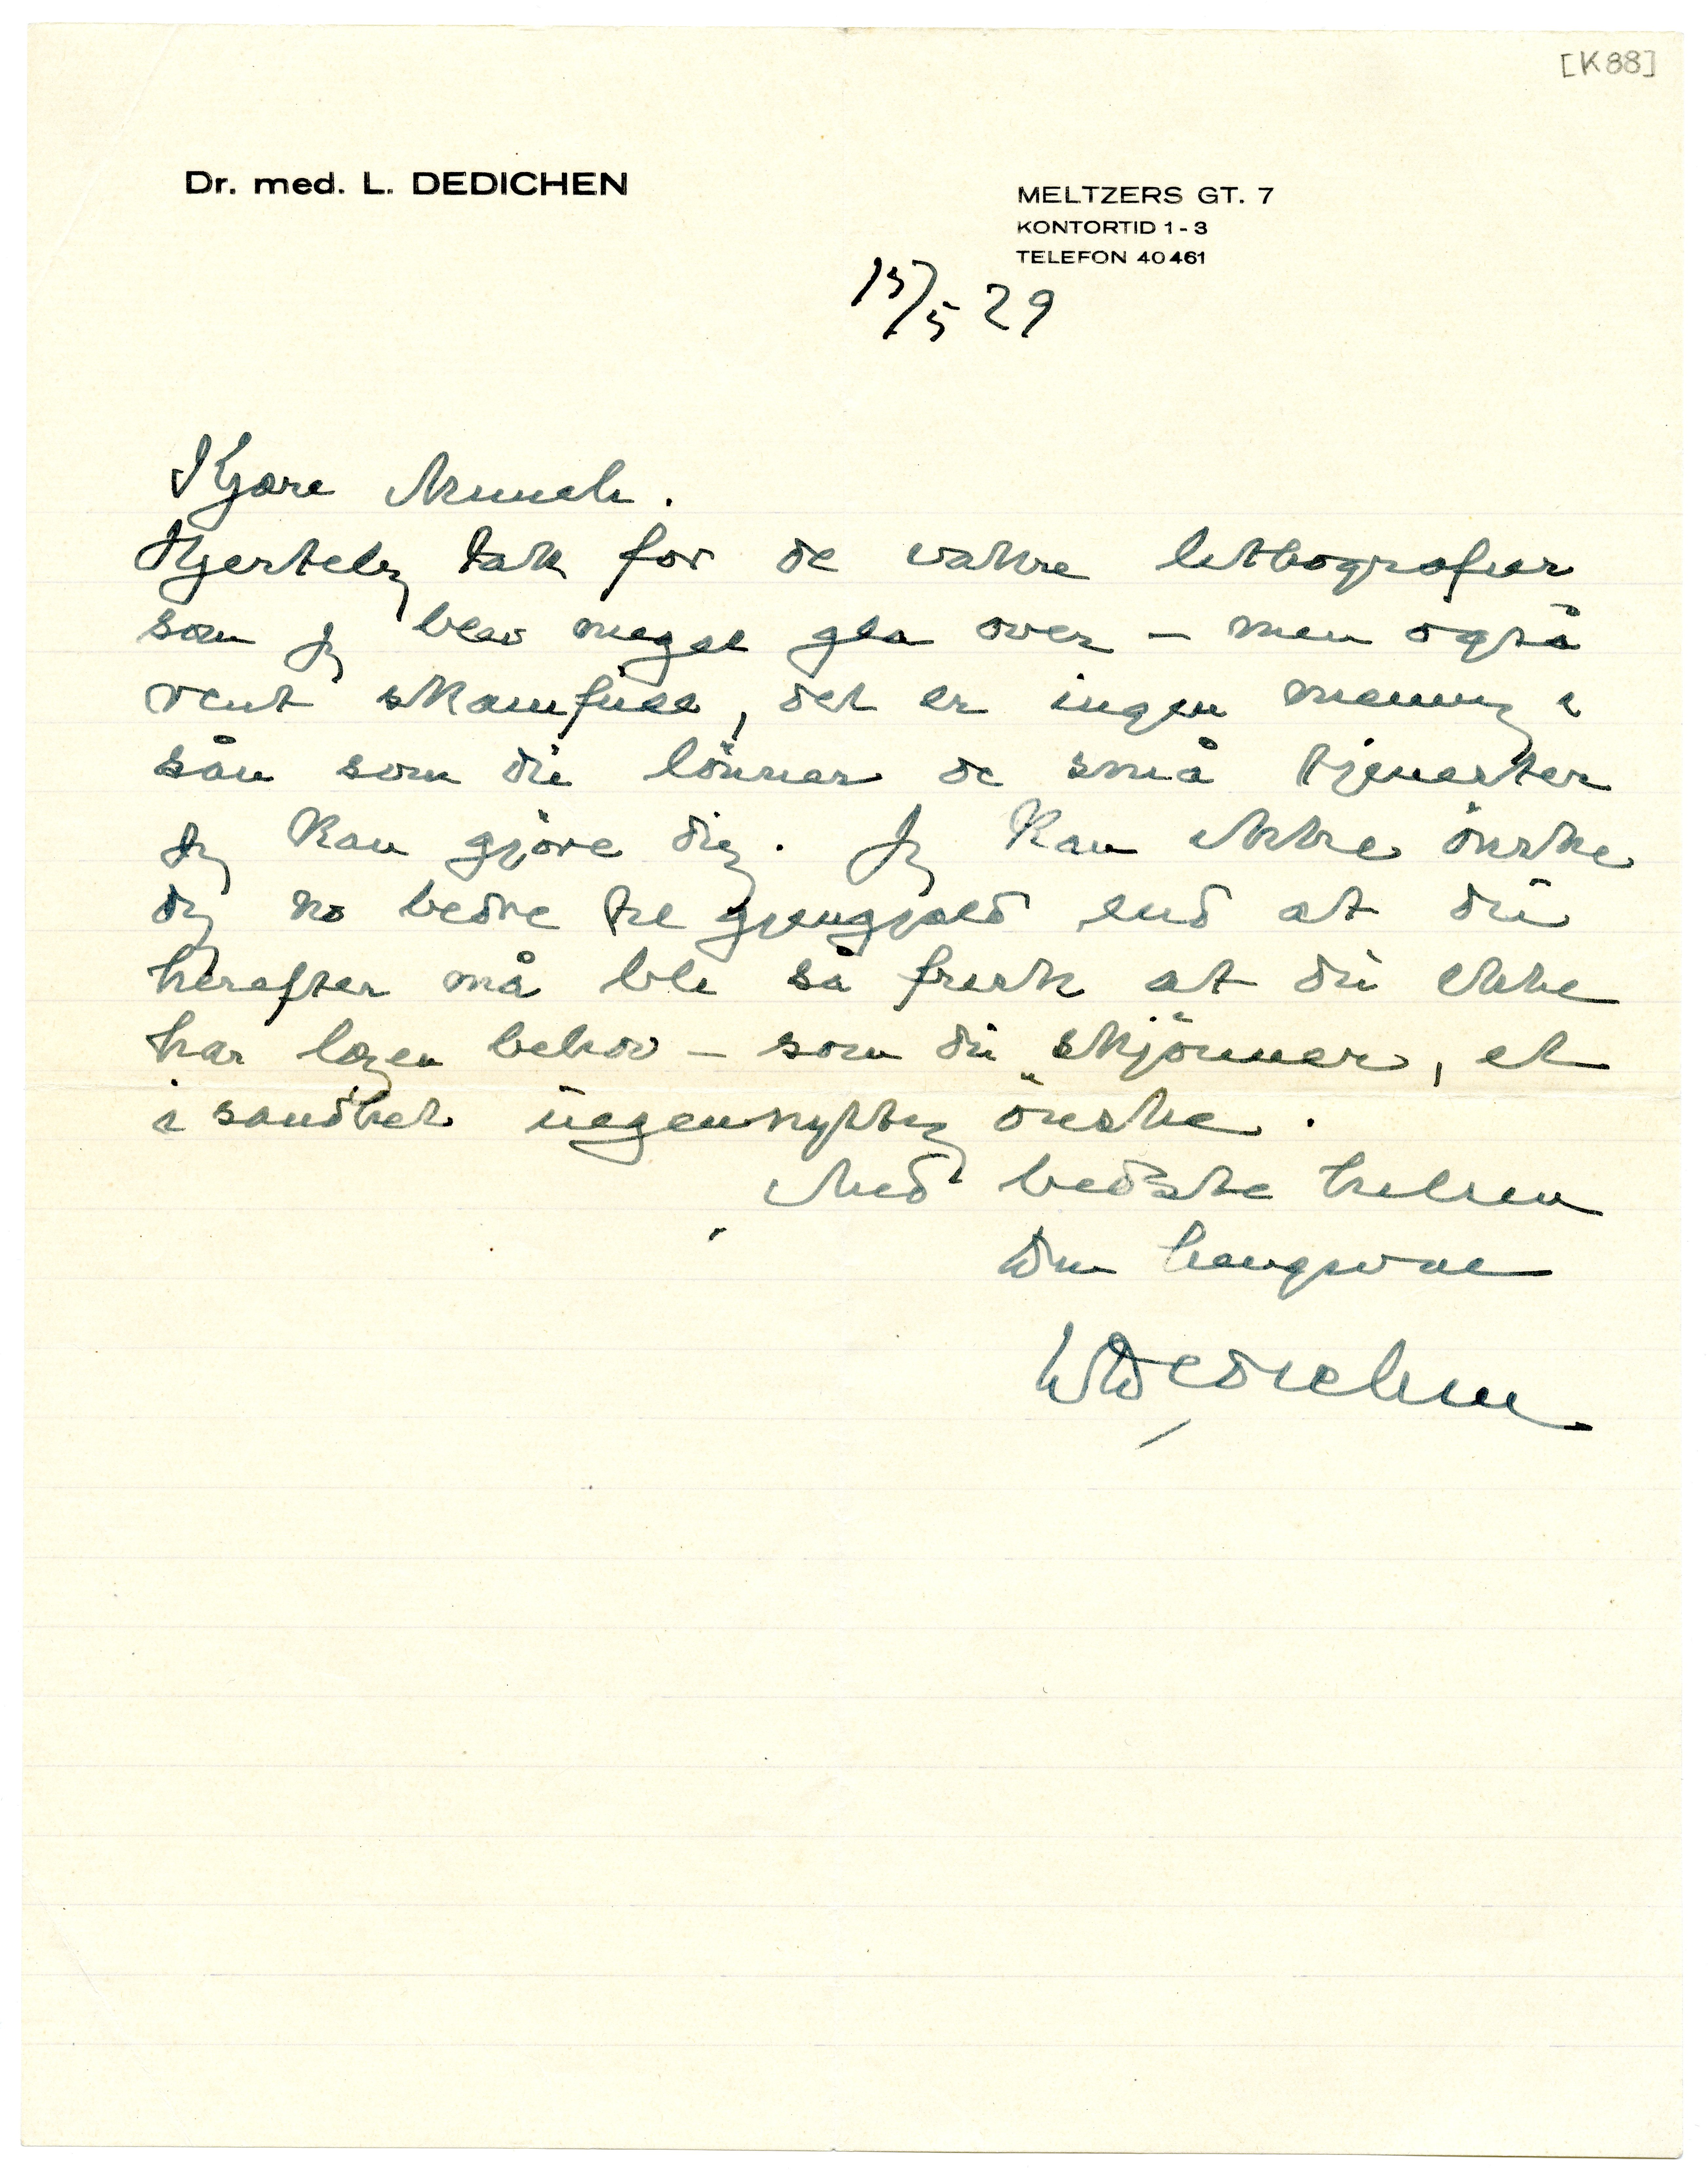 [K88]
Dr. med. L. DEDICHEN
MELTZERS GT. 7
KONTORTID 1 - 3
TELEFON 40461
15/5 29
Kjære Munch.
Hjertelig tak for de vakre lithografier
som jeg blev meget gla over – men også
rent skamfull, det er ingen mening i
sån som du lönner de små tjenester
jeg kan gjöre dig. Jeg kan ikke önske
dig no bedre til gjengjæld end at du
herefter må bli så frisk at du ikke
har lægen behov – som du skjönner, et
i sandhet uegennyttig önske.
Med bedste hilsen
Din hengivne
LDedichen